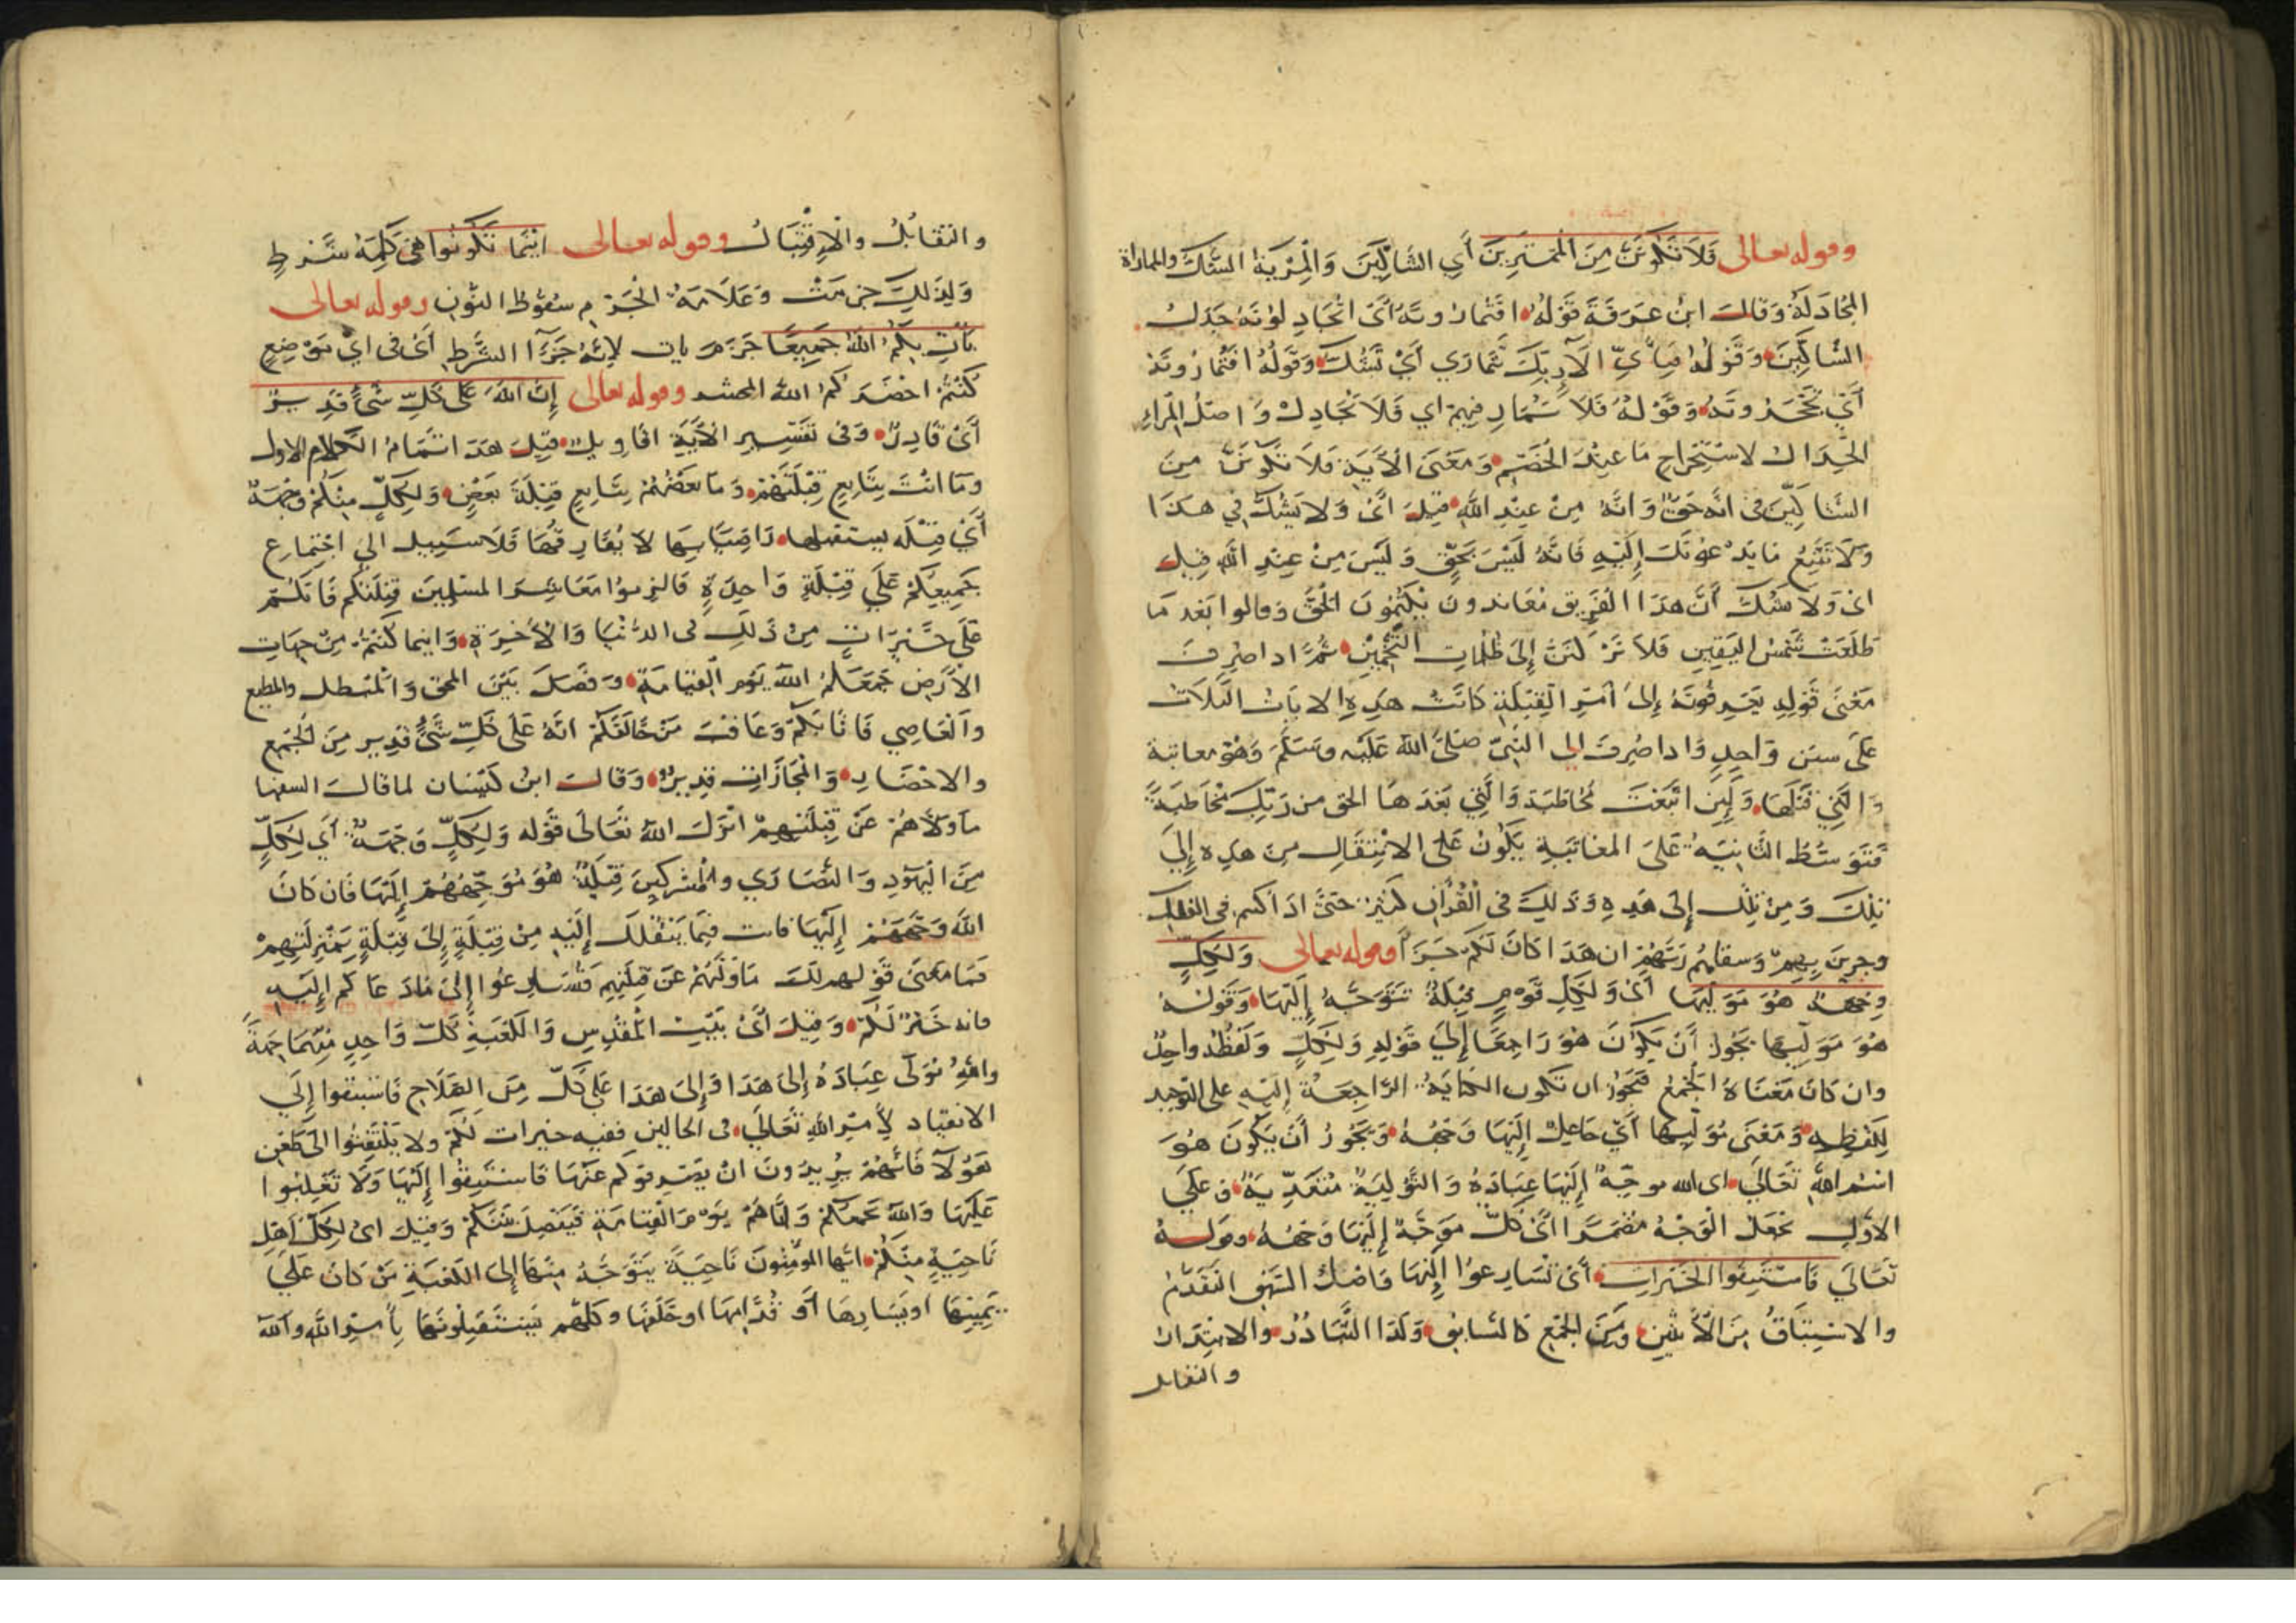 وقوله تعالى فَلَا تَكُونَنَّ مِنَ الْمُمْتَرِينَ أَيِ الشَّاكِّينَ وَالْمِرْيَةُ الشَّكُّ والمماراة
المجَادَلَةُ وَقَالَ ابنُ عَرَفَةَ قَوْلُهُ افَتُمَارُونَهُ أَيْ اتُجَادِلُونَهُ جِدَالَ
الشَّاكِّينَ وَقَوْلُهُ فَبِأَيِّ الآءِ رَبِّكَ تَتَمَارَي أَيْ تَشُكُّ وَقَوْلُهُ افَتُمَارُونَهُ
أَيْ تَجْحَدُونَهُ وَقَوْلُهُ فَلَا تُمَارِ فِيهِمْ اي فَلَا تُجَادِلْ وَاصْلُ الْمِرَاءِ
الجِدَال لاسْتِخْرَاجِ مَا عِنْدَ الخَصْمِ وَمَعْنَى الْآيَةِ فَلَا تَكُونَنَّ مِنَ
الشَّاكِّينَ فى انَّه حَقٌّ وَانَّهُ مِنْ عِنْدِ اللَّهِ قِيلَ اىْ وَلَا يَشُكُّ في هَذَا
وَلَا تَتَّبِعْ مَا يَدْعُونَكَ إِلَيْهِ فَانَّهُ لَيْسَ بِحَقٍّ وَلَيْسَ مِنْ عِنْدِ اللَّهِ قيل
اىْ وَلَا شَكَّ أَنَّ هَذَا الفَرِيق مُعَاندون يَكْتُمُونَ الْحَقَّ وَقالوا بَعْدَ مَا
طَلَعَتْ شَمْسُ اليَقِينِ فَلَا تَرْكَنَنَّ إِلَى ظُلُمَاتِ التَّخْمِينِ ثُمَّ اذا صُرِفَ
مَعْنَى قَوْلِهِ يَعْرِفُونَهُ إِلَى أَمْرِ الْقِبْلَةِ كَانَتْ هَذِهِ الايَاتُ الثَّلَاثُ
عَلَى سنَنٍ وَاحِدٍ وَاذا صُرِفَ الى النَّبِيِّ صَلَّى اللَّهُ عَلَيْهِ وسَلَّمَ وَهُوَ معاتبة
وَالَّتِي قَبْلَهَا وَلَئِنِ اتَّبَعْتَ مُخَاطَبَةً وَالَّتِي بَعْدَهَا الحق من رَبِّكَ مُخَاطَبَةً
فَتَوَسُّطُ الثَّانِيَةِ عَلَى المعَاتَبَةِ يَكُونُ عَلَى الانْتِقَالِ مِنْ هَذِهِ إِلَى
تِلْكَ وَمِنْ تِلْكَ إِلَى هَذِهِ وَذَلِكَ فى الْقُرْآنِ كَثِيْرٌ حَتَّى اذَا كنتم في الفلك
وجرين بِهِمْ وَسقاهُم رَبُّهُمْ ان هَذَا كَانَ لَكُمْ جَزَاءً وقوله تعالى وَلِكُلٍّ
وِجْهَةٌ هُوَ مُوَلِّيهَا أَىْ وَلِكُلِّ قَوْمٍ قِبْلَةٌ يَتَوَجَّهُ إِلَيْهَا وَقَوْلُهُ
هُوَ مُوَلِّيها يَجُوزُ أَنْ يَكُونَ هُوَ رَاجِعًا إِلَى قَوْلِهِ وَلِكُلٍّ وَلَفْظُهُ واحِدٌ
وان كَانَ مَعْنَاهُ الْجَمْعَ فَيَجُوزُ ان تكون الكنايَةُ الرَّاجِعَةُ إِلَيْهِ على التوحيد
لِلَفْظِهِ وَمَعْنَى مُوَلِّيهَا أَيْ جَاعِلٌ إِلَيْهَا وَجْهَهُ وَيَجُوزُ أَنْ يَكُونَ هُوَ
اسْمُ اللَّهِ تَعَالَى اى الله موجِّهٌ إِلَيْهَا عِبَادَهُ وَالتَّوْلِيَةُ مُتَعَدِّيَةٌ وعَلَى
الاوَّلِ نَجْعَلُ الْوَجْهَ مُضْمَرًا أَىْ كُلٌّ مُوَجِّهٌ إِلَيْهَا وَجْهَهُ وقولهُ
تَعَالَى فَاسْتَبِقُوا الْخَيْرَاتِ أَىْ تَسَارِعُوا إِلَيْهَا وَاصْلُ السَّبْقِ التَقَدُّمُ
والاسْتِبَاقُ مِنَ الْاثْنَيْنِ وَمِنَ الْجَمْعِ كَالتسَابُقِ وَكَذَا التَّبَادُرُ والابْتِدَارُ
والتقابل
والتقَابُلُ والْاِقْتِبَالُ وقوله تعالى ايْنَمَا تَكُونُوا هِىَ كَلِمَةُ شَرْطٍ
وَلِذَلِكَ جزمَتْ وَعَلَامَةُ الجَزْمِ سُقُوطُ النُّونِ وقوله تعالى
يَأْتِ بِكُمُ اللَّهُ جَمِيعًا جَزَمَ يات لِأنَّهُ جَزَآءُ الشَّرْطِ أَىْ فى اىِّ مَوْضِعٍ
كُنْتُمْ احْضَرَكُمُ اللَّهُ المحشر وقوله تعالى إِنَّ اللَّهَ عَلَى كُلِّ شَىْءٍ قَدِيرٌ
أَىْ قَادِرٌ وَفى تَفْسِيرِ الْآيَةِ اقَاوِيلُ قِيلَ هَذَا تَمَامُ الكلام الاول
وَمَا انْتَ بِتَابِعٍ قِبْلَتَهُمْ وَمَا بَعْضُهُمْ بِتَابِعٍ قِبْلَةَ بَعْضٍ وَلِكُلٍّ مِنْكُمْ وِجْهَةٌ
أَىْ قِبْلَة يستقبلها رَاضِيًا بِهَا لَا يُفَارِقُهَا فَلَا سَبِيلَ الَى اجْتِمَاعِ
جَمِيعِكُمْ عَلَى قِبْلَةٍ وَاحِدَةٍ فَالزموا مَعَاشِرَ المسْلِمِينَ قِبْلَتَكُمْ فَانكُمْ
عَلَى خَيْرَاتٍ مِنْ ذَلِكَ فى الدُّنْيَا وَالْآخِرَةِ وَاينما كُنْتُمْ مِنْ جِهَاتِ
الْأَرْضِ جَمَعَكُمُ اللَّهُ يَوْمَ الْقِيَامَةِ وَفَصَلَ بَيْنَ المحق وَالْمُبْطل والمطيع
والْعَاصِي فَاثَابَكُمْ وَعَاقَبَ مَنْ خَالَفَكُمْ انَّهُ عَلَى كُلِّ شَىْءٍ قدير مِنَ الْجَمْعِ
والاحْضَارِ وَالْمجَازَاتِ قَدِيرٌ وَقَالَ ابنُ كَيْسَان لما قَالَ السفها
مَا وَلَّاهُمْ عَنْ قِبْلَتِهِمْ انْزَلَ اللَّهُ تَعَالَى قَوْلَه وَلِكُلٍّ وِجْهَةٌ أَيْ لِكُلٍّ
مِنَ الْيَهُودِ وَالنَّصَارَي والْمُشْرِكِينَ قِبْلَةٌ هُوَ مُوَجِّهُهُمْ إِلَيْهَا فَان كَانَ
اللَّهُ وَجَّهَهُمْ إِلَيْهَا فانت فِيمَا يَنْقُلُكَ إِلَيْهِ مِنْ قِبْلَةٍ إِلَى قِبْلَةٍ بِمَنْزِلَتِهِمْ
فَمَا مَعْنَى قَوْلهم لَكَ مَا وَلَّهُمْ عَنْ قِبْلَتِهِمِ فَتسَارِعُوا إِلَى مَا دَعَاكم إِلَيْهِ
فانه خَيْرٌ لَكُمْ وَقِيلَ أَىْ بَيْتُ الْمَقْدِسِ وَالْكَعْبَةِ كُلُّ وَاحِدٍ مِنْهُمَا جِهَةٌ
واللهُ يُوَلَّى عِبَادَهُ إِلَى هَذَا وَإِلَى هَذَا عَلَى كُلٍّ مِنَ الصَّلَاحِ فَاسْتَبِقُوا إِلَى
الانقياد لِأَمْرِ اللَّهِ تَعَالَى فى الحالين ففيه خيرات لَكُمْ ولا يَلْتَفِتُوا الى طَعْنِ
هَؤُلَآ فَانَّهُمْ يُرِيدُونَ انْ يَصْرِفوكم عَنْهَا فَاسْتَبِقُوا إِلَيْهَا وَلَا تَغْلِبُوا
عَلَيْهَا وَاللَّهُ يجمعكُمْ وَايَّاهُمْ يَوْمَ الْقِيَامَةِ فَيَفْصِلَ بَيْنَكُمْ وَقِيلَ اىْ لِكُلِّ اهْلِ
نَاحِيَةٍ مِنْكُمْ ايُّها المؤْمِنُونَ نَاحِيَةٌ يَتَوَجَّهُ مِنْهَا إِلَى الْكَعْبَةِ مَنْ كَانَ عَلَى
يَمِينِهَا اوْ يَسَارِهَا أَوْ قُدَّامِهَا اوخَلْفِهَا وكلُّهم يَسْتَقْبِلُونَهَا بِأَمْرِ اللَّهِ واللَّهُ